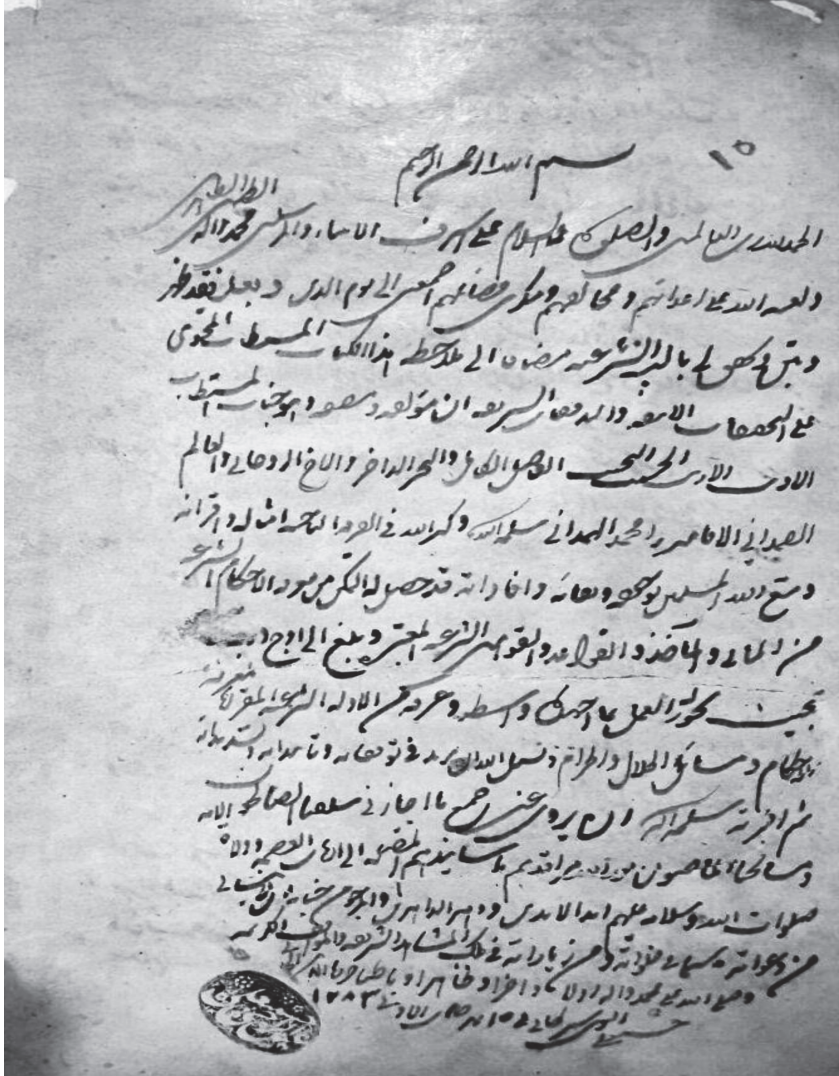 ١٥
بسم الله الرحمن الرحيم
الحمد لله رب العالمين والصلوة والسلام على اشرف الانبياء والمرسلين محمد وآله الطيبين الطاهرين
ولعنة الله على اعدائهم ومخالفيهم ومنكرى فضائلهم اجمعين الى يوم الدين وبعد فقد ظهر
الى ملاحظة هذا الكتاب المستطاب المحتوى
على التحقيقات الانيقة والتدقيقات الشريفة ان مؤلفه ومصنفه وهو جناب المستطاب
الحسيب النجيب الفاضل الكامل والبحر الزاخر والاخ الروحانى والعالم
الصمدانى الاقا ميرزا محمد الهمدانى سلمه الله وكثر الله فى الفرقة الناجية امثاله واقرانه
ومتع الله المسلمين وافاداته قد حصل له التمكن من معرفة الاحكام الشرعية
من المبانى والمآخذ والقواعد والقوانين الشرعية المعتبرة وبلغ الى اوج
بحيث يجوز له العمل بما اجتهد واستنبطه وعرفه من الادلة الشرعية المقررة لمعرفة
الاحكام ومسائل الحلال والحرام ونسئل الله ان يزيد فى توفيقاته وتأييداته وتسديداته
ثم اجزته سلمه الله ان يروى عنى جميع ما اجازنى سلفنا الصالحون
ومشائخنا الماضون نور الله مراقدهم باسانيدهم المتصلة الى اهل العصمة
صلوات الله وسلامه عليهم ابد الآبدين ودهر الداهرين والمرجو من جنابه ان لا ينسانى
من دعواته سيما فى خلواته ومن زياراته فى تلك المشاهد الشريفة والمواقف الكريمة
وصلى الله على محمد وآله اولا وآخرا وظاهرا وباطنا
فى ١٥ شهر ١٢٨٣